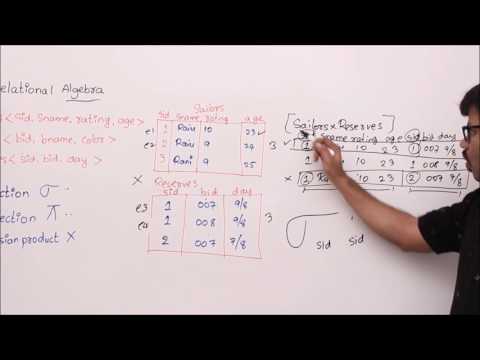 elational Algebra
< sid, sname, rating, age >
< bid, bname, color >
< sid, bid, day >
ection σ
ection π
sian product ×
Sailors
sid sname, rating, age
e1 1 Raju 10 23 ✓
e2 2 Raju 9 24
3 Rani 9 25
3
×
Reserves
sid bid day
e3 1 007 9/8
e4 1 008 9/8
2 007 7/8
3
[Sailors × Reserves]
sname rating age sid bid day
✓ 1 10 23 1 007 9/8
1 10 23 1 008 9/8
× 1 10 23 2 007 7/8
σ sid sid